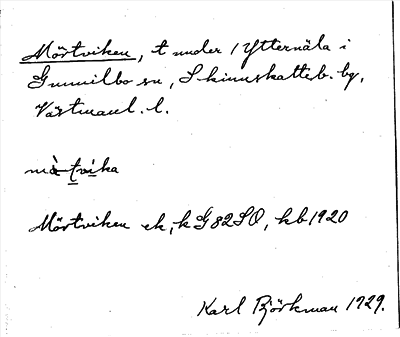 Mörtviken, t under 1 Ytternäla i
Gunnilbo sn, Skinnskatteb. bg,
Västmanl. l.
mòtvika
Mörtviken ek, k G 82 SO, kb 1920
Karl Björkman 1929.